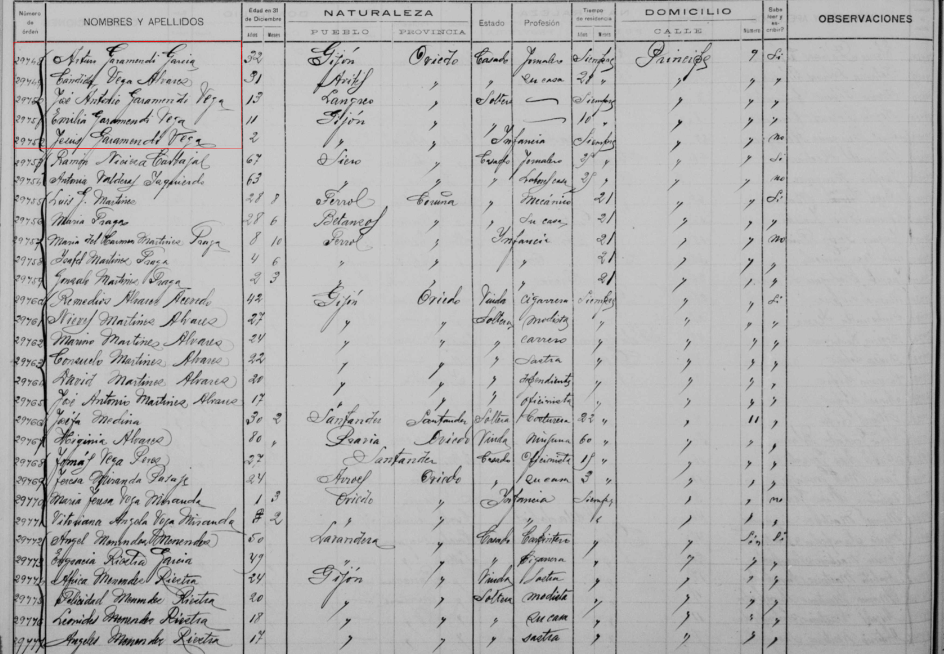 Número de orden NOMBRES Y APELLIDOS Edad en 31 de Diciembre Años Meses NATURALEZA PUEBLO PROVINCIA Estado Profesión Tiempo de residencia Años Meses DOMICILIO CALLE Número Sabe leer y escribir? OBSERVACIONES
Arturo Garamendi Garcia 32 Gijón Oviedo Casado Jornalero Siempre 9 Si
Vega Alvares 31 Avilés su casa " "
29750 José Antonio Garamendi Vega 13 Langreo " Soltero — Siempre " "
29751 Emilia Garamendi Vega 11 Gijón " " 10 " " "
Jesús Garamendi Vega 2 " " Infancia Siempre " " no
29753 Ramón Carbajal 67 Siero " Casado Jornalero " " Si
29754 Antonia Valderas Izquierdo 63 " " " " " no
29755 Luis F. Martines 28 8 Ferrol Coruña " Mecánico 21 " " Si
29756 Maria Praga 28 6 Betanzos " " su casa 21 " " "
29757 Maria del Carmen Martines Praga 8 10 Ferrol " Infancia 21 " " no
29758 Isabel Martines Praga 4 6 " " " 21 " " "
29759 Gonzalo Martines Praga 2 3 " " " 21 " " "
29760 Remedios Alvares Acevedo 42 Gijón Oviedo Viuda Cigarrera Siempre " " Si
29761 Nieves Martines Alvares 27 " " Soltera modista " " " "
29762 Marino Martines Alvares 24 " " " carrero " " " "
29763 Consuelo Martines Alvares 22 " " " sastra " " " "
29764 David Martines Alvares 20 " " " dependiente " " " "
29765 José Antonio Martines Alvares 17 " " " oficinista " " " "
29766 Josefa Medina 30 2 Santander Santander Soltera Costurera 22 " " 11 "
29767 Higinia Alvares 80 " Pravia Oviedo Viuda Ninguna 60 " " " "
29768 Tomás Vega Peres 27 Santander Casado Oficinista 15 " " " "
29769 Teresa Miranda 24 Oviedo " su casa 3 " " " "
29770 Maria Teresa Vega Miranda 1 3 Oviedo " Infancia Siempre " " no
29771 Angela Vega Miranda 2 " " " " " " "
29772 Angel Menendes Menendes 50 Lavandera " Casado Carpintero " " Si
29773 Garcia 49 " " " Cigarrera " " " "
29774 Africa Menendes 24 Gijón " Viuda Sastra " " " "
29775 Felicidad Menendes 20 " " Soltera modista " " " "
29776 Leonides Menendes 18 " " " su casa " " " "
29777 Angeles Menendes 17 " " " sastra " " " "